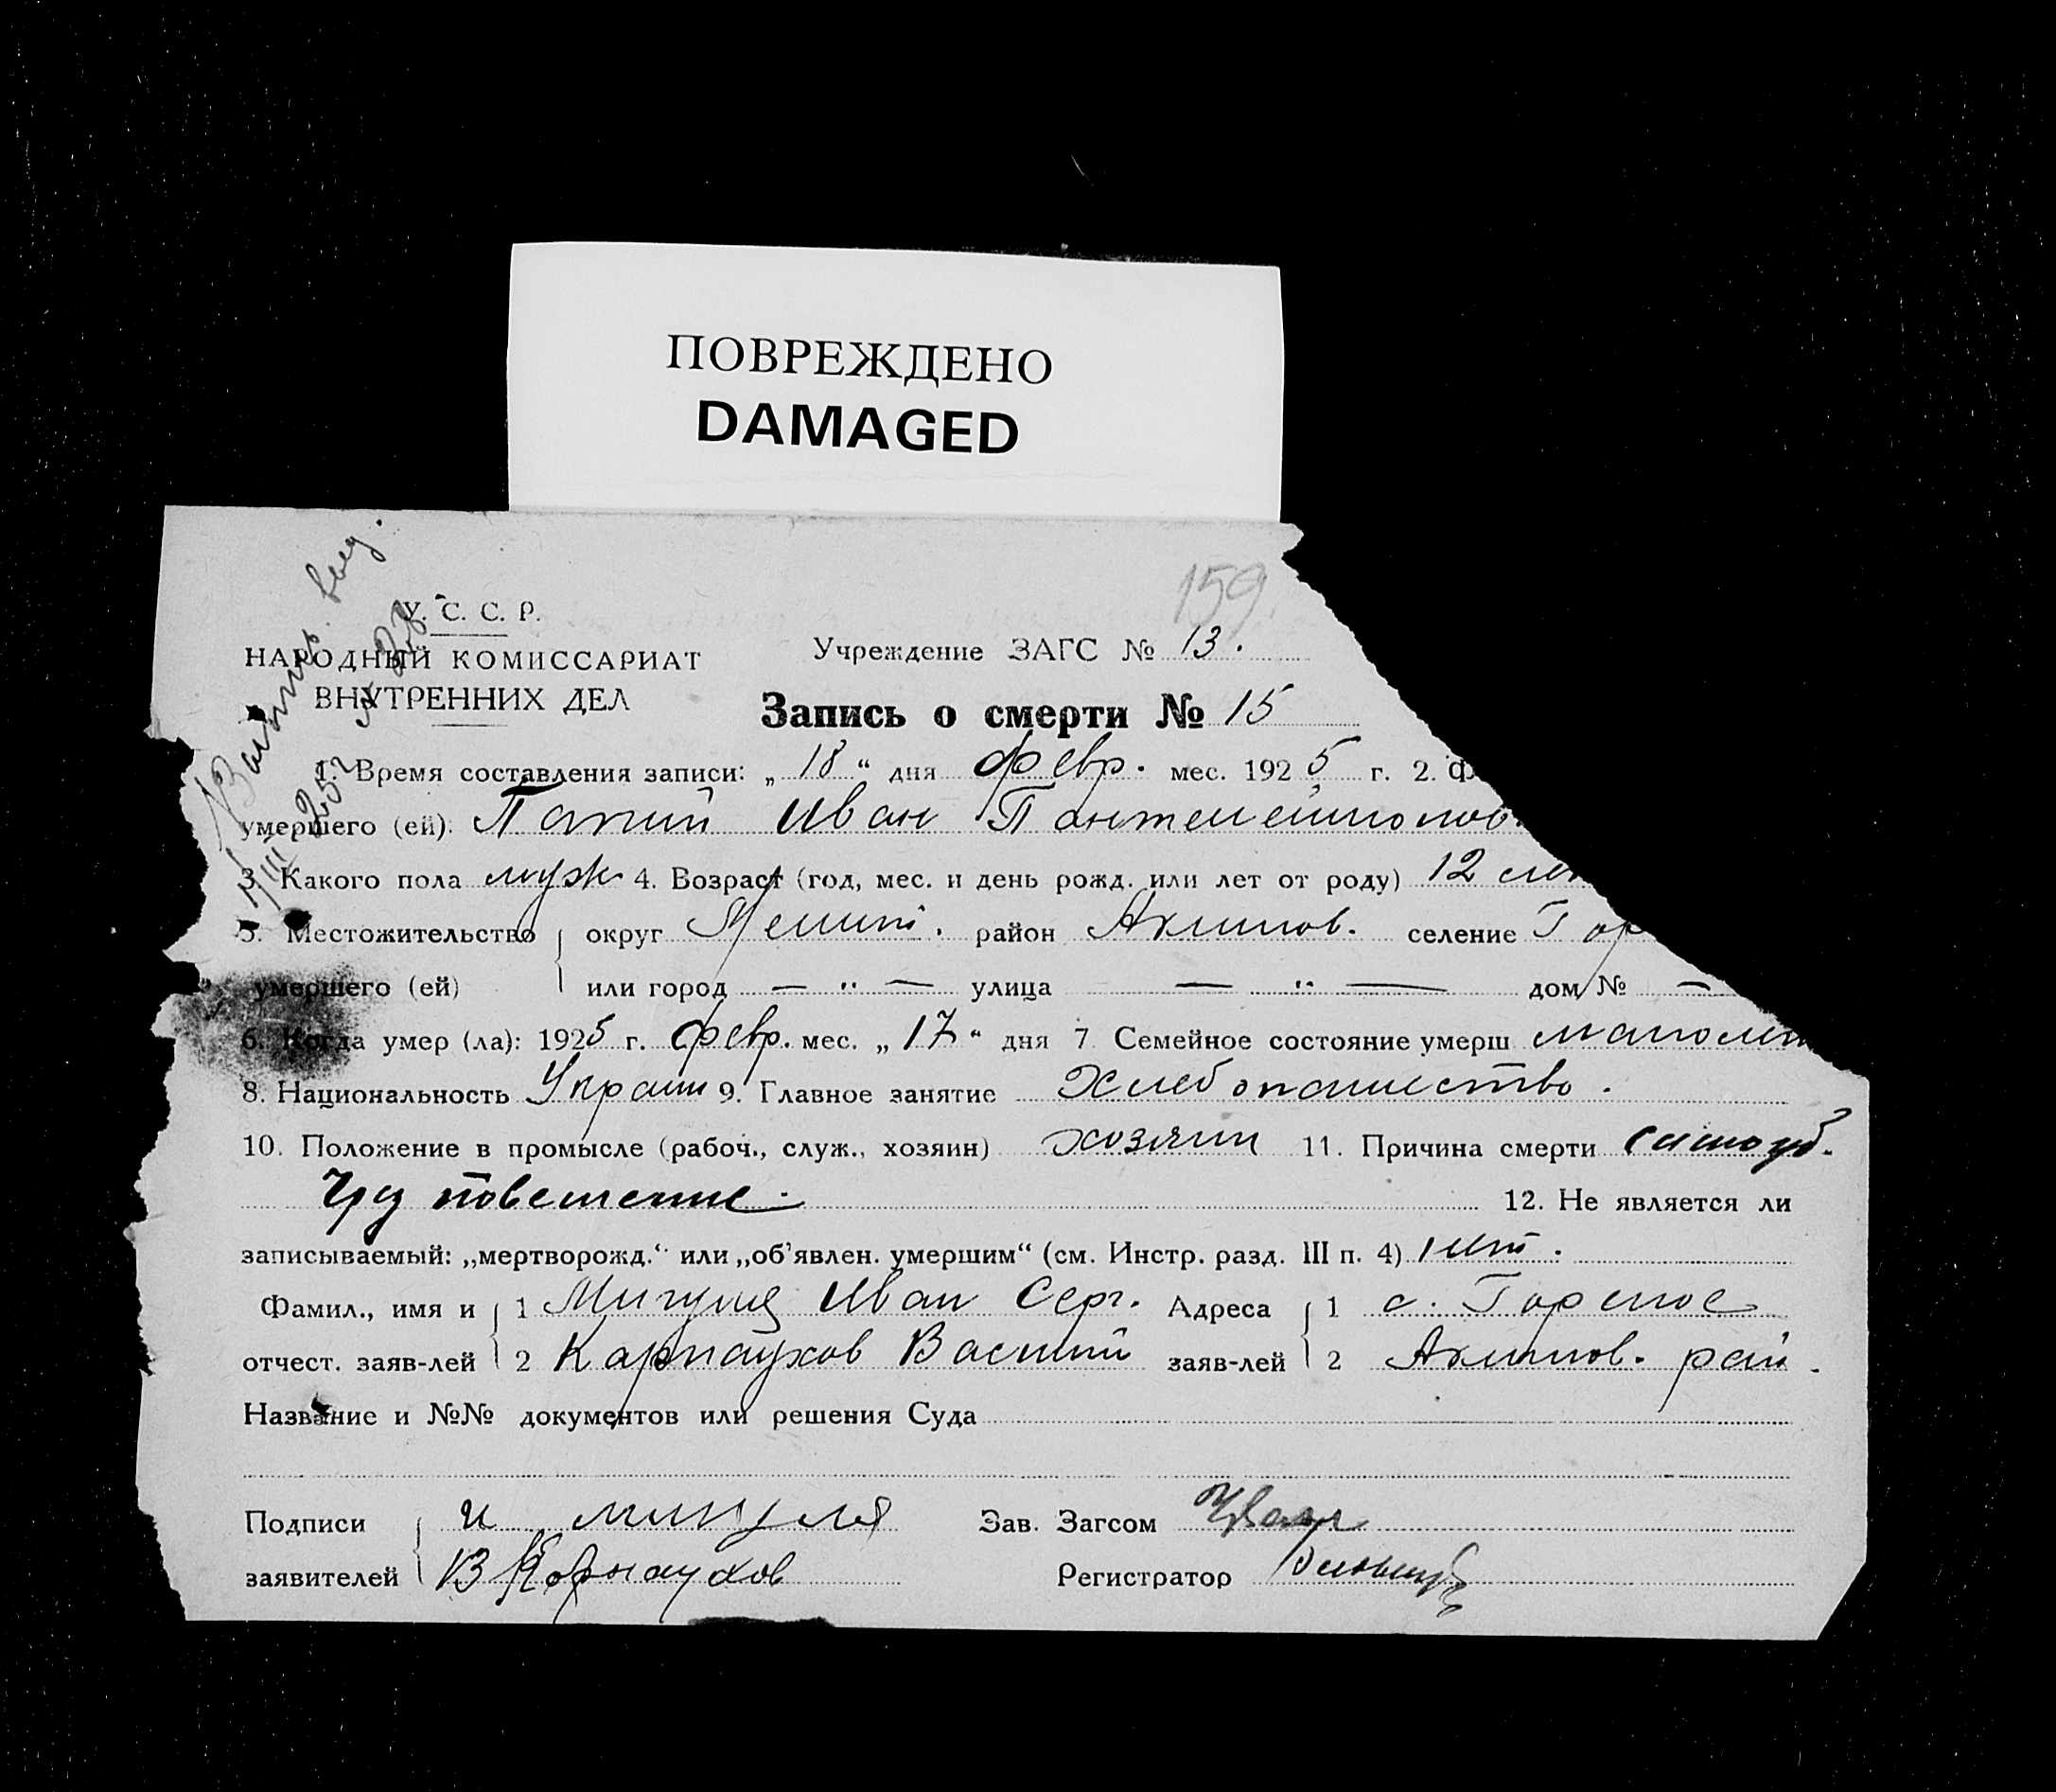 ПОВРЕЖДЕНО
DAMAGED
159
У. С. С. Р.
НАРОДНЫЙ КОМИССАРИАТ
ВНУТРЕННИХ ДЕЛ
Учреждение ЗАГС № 13.
Запись о смерти № 15
1. Время составления записи: „18“ дня февр. мес. 1925 г. 2. Ф
умершего (ей): Папий Иван
3. Какого пола муж 4. Возраст (год, мес. и день рожд. или лет от роду) 12 лет
5. Местожительство округ Мелит. район Акимов. селение Гор
умершего (ей) или город — „ — улица — „ — дом № —
6. Когда умер (ла): 1925 г. февр. мес. „17“ дня 7 Семейное состояние умерш малолет
8. Национальность Украин 9. Главное занятие Хлебопашество.
10. Положение в промысле (рабоч., служ., хозяин) хозяин 11. Причина смерти самоуб.
Чрз повешение.
12. Не является ли
записываемый: „мертворожд.“ или „об’явлен. умершим“ (см. Инстр. разд. III п. 4) нет.
Фамил., имя и 1 Мигуля Иван Серг. Адреса 1 с. Горелое
отчест. заяв-лей 2 Карнаухов Василий заяв-лей 2 Акимов. рай.
Название и №№ документов или решения Суда
Подписи И мигуля Зав. Загсом
заявителей В Карнаухов Регистратор